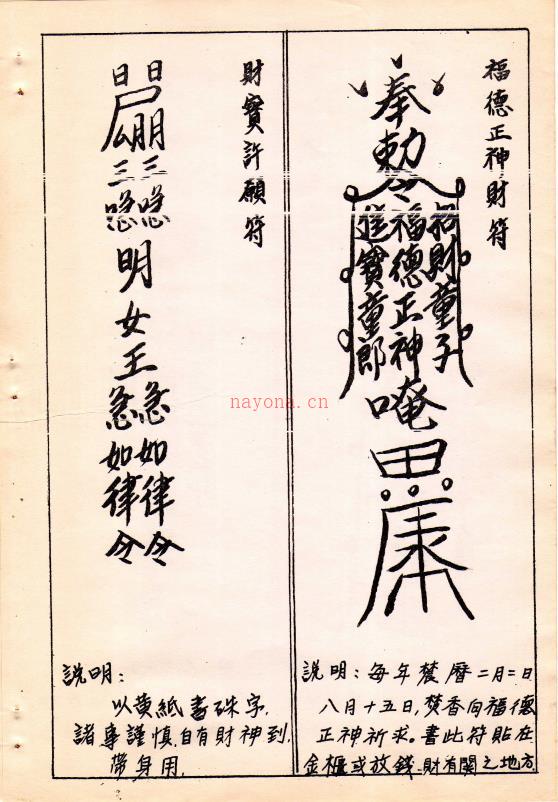 福德正神財符
奉勅令
招財童子
福德正神
進寶童郎
唵
説明：每年農曆二月二日
八月十五日，焚香向福德
正神祈求。書此符貼在
金櫃或放錢財有関之地方
財寶許願符
日日
明女王
急急如律令
説明：
以黄紙書硃字，
諸事謹慎，自有財神到，
帶身用，
nayona.cn